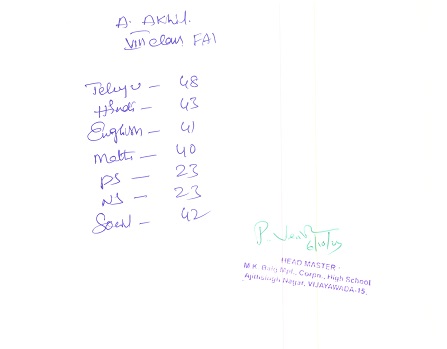 A. Akhil.
VIII class FAI
Telugu - 48
Hindi - 43
English - 41
Maths - 40
PS - 23
NS - 23
Social - 42
6/10/
HEAD MASTER
M.K. Mpl., Corpn., High School
Ajithsingh Nagar, VIJAYAWADA-15.